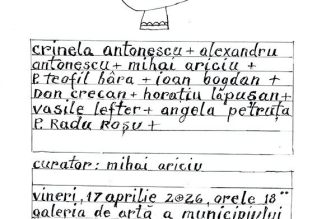 crinela antonescu + alexandru
antonescu + mihai ariciu +
P. Teofil bâra + ioan bogdan +
Don crecan + horatiu lăpușan +
vasile lefter + angela petruța
P. Radu Roșu +
curator: mihai ariciu
vineri, 17 aprilie 2026, orele 18°°
galeria de artă a municipiului